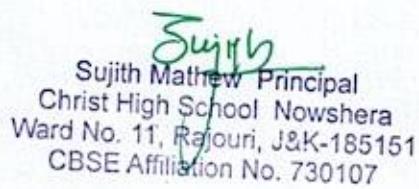 Sujith
Sujith Mathew Principal
Christ High School Nowshera
Ward No. 11, Rajouri, J&K-185151
CBSE Affiliation No. 730107